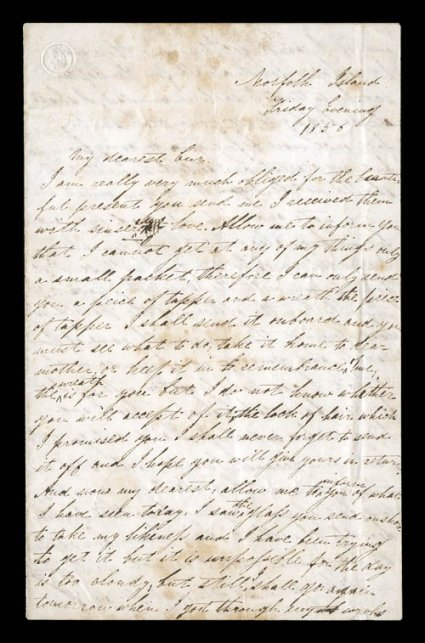 Norfolk Island
Friday Evening
1856
My dearest
I am really very much obliged for the beauti-
ful present you send me I received them
with sincere love. Allow me to inform you
that I cannot get at any of my things only
a small packet, therefore I can only send
you a peice of tapper and a wreath the peice
of tapper I shall send it onboard and you
must see what to do, take it home to dear
mother, or keep it in to remembrance, me,
the wreath is for you but I do not know whather
you will accept of it, the lock of hair which
I promised you I shall never forget to send
it off and I hope you will give yours in return
And now my dearest, allow me to inform you of what
I have seen today, I saw the glass you send onshore
to take my likeness and I have been trying
to get it but it is unpossible for the day
is too cloudy, but still, shall go again
tomorrow when I got through my work